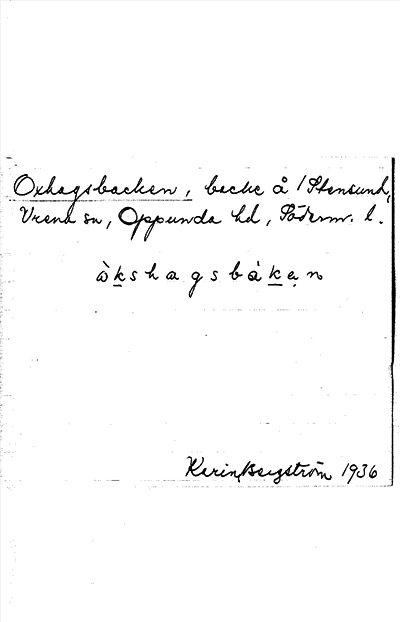 Oxhagsbacken, backe å 1 Stensund,
Vrena sn, Oppunda hd, Söderm. l.
ὼk̲shagsbàk̲ẹn
Karin Bergström 1936